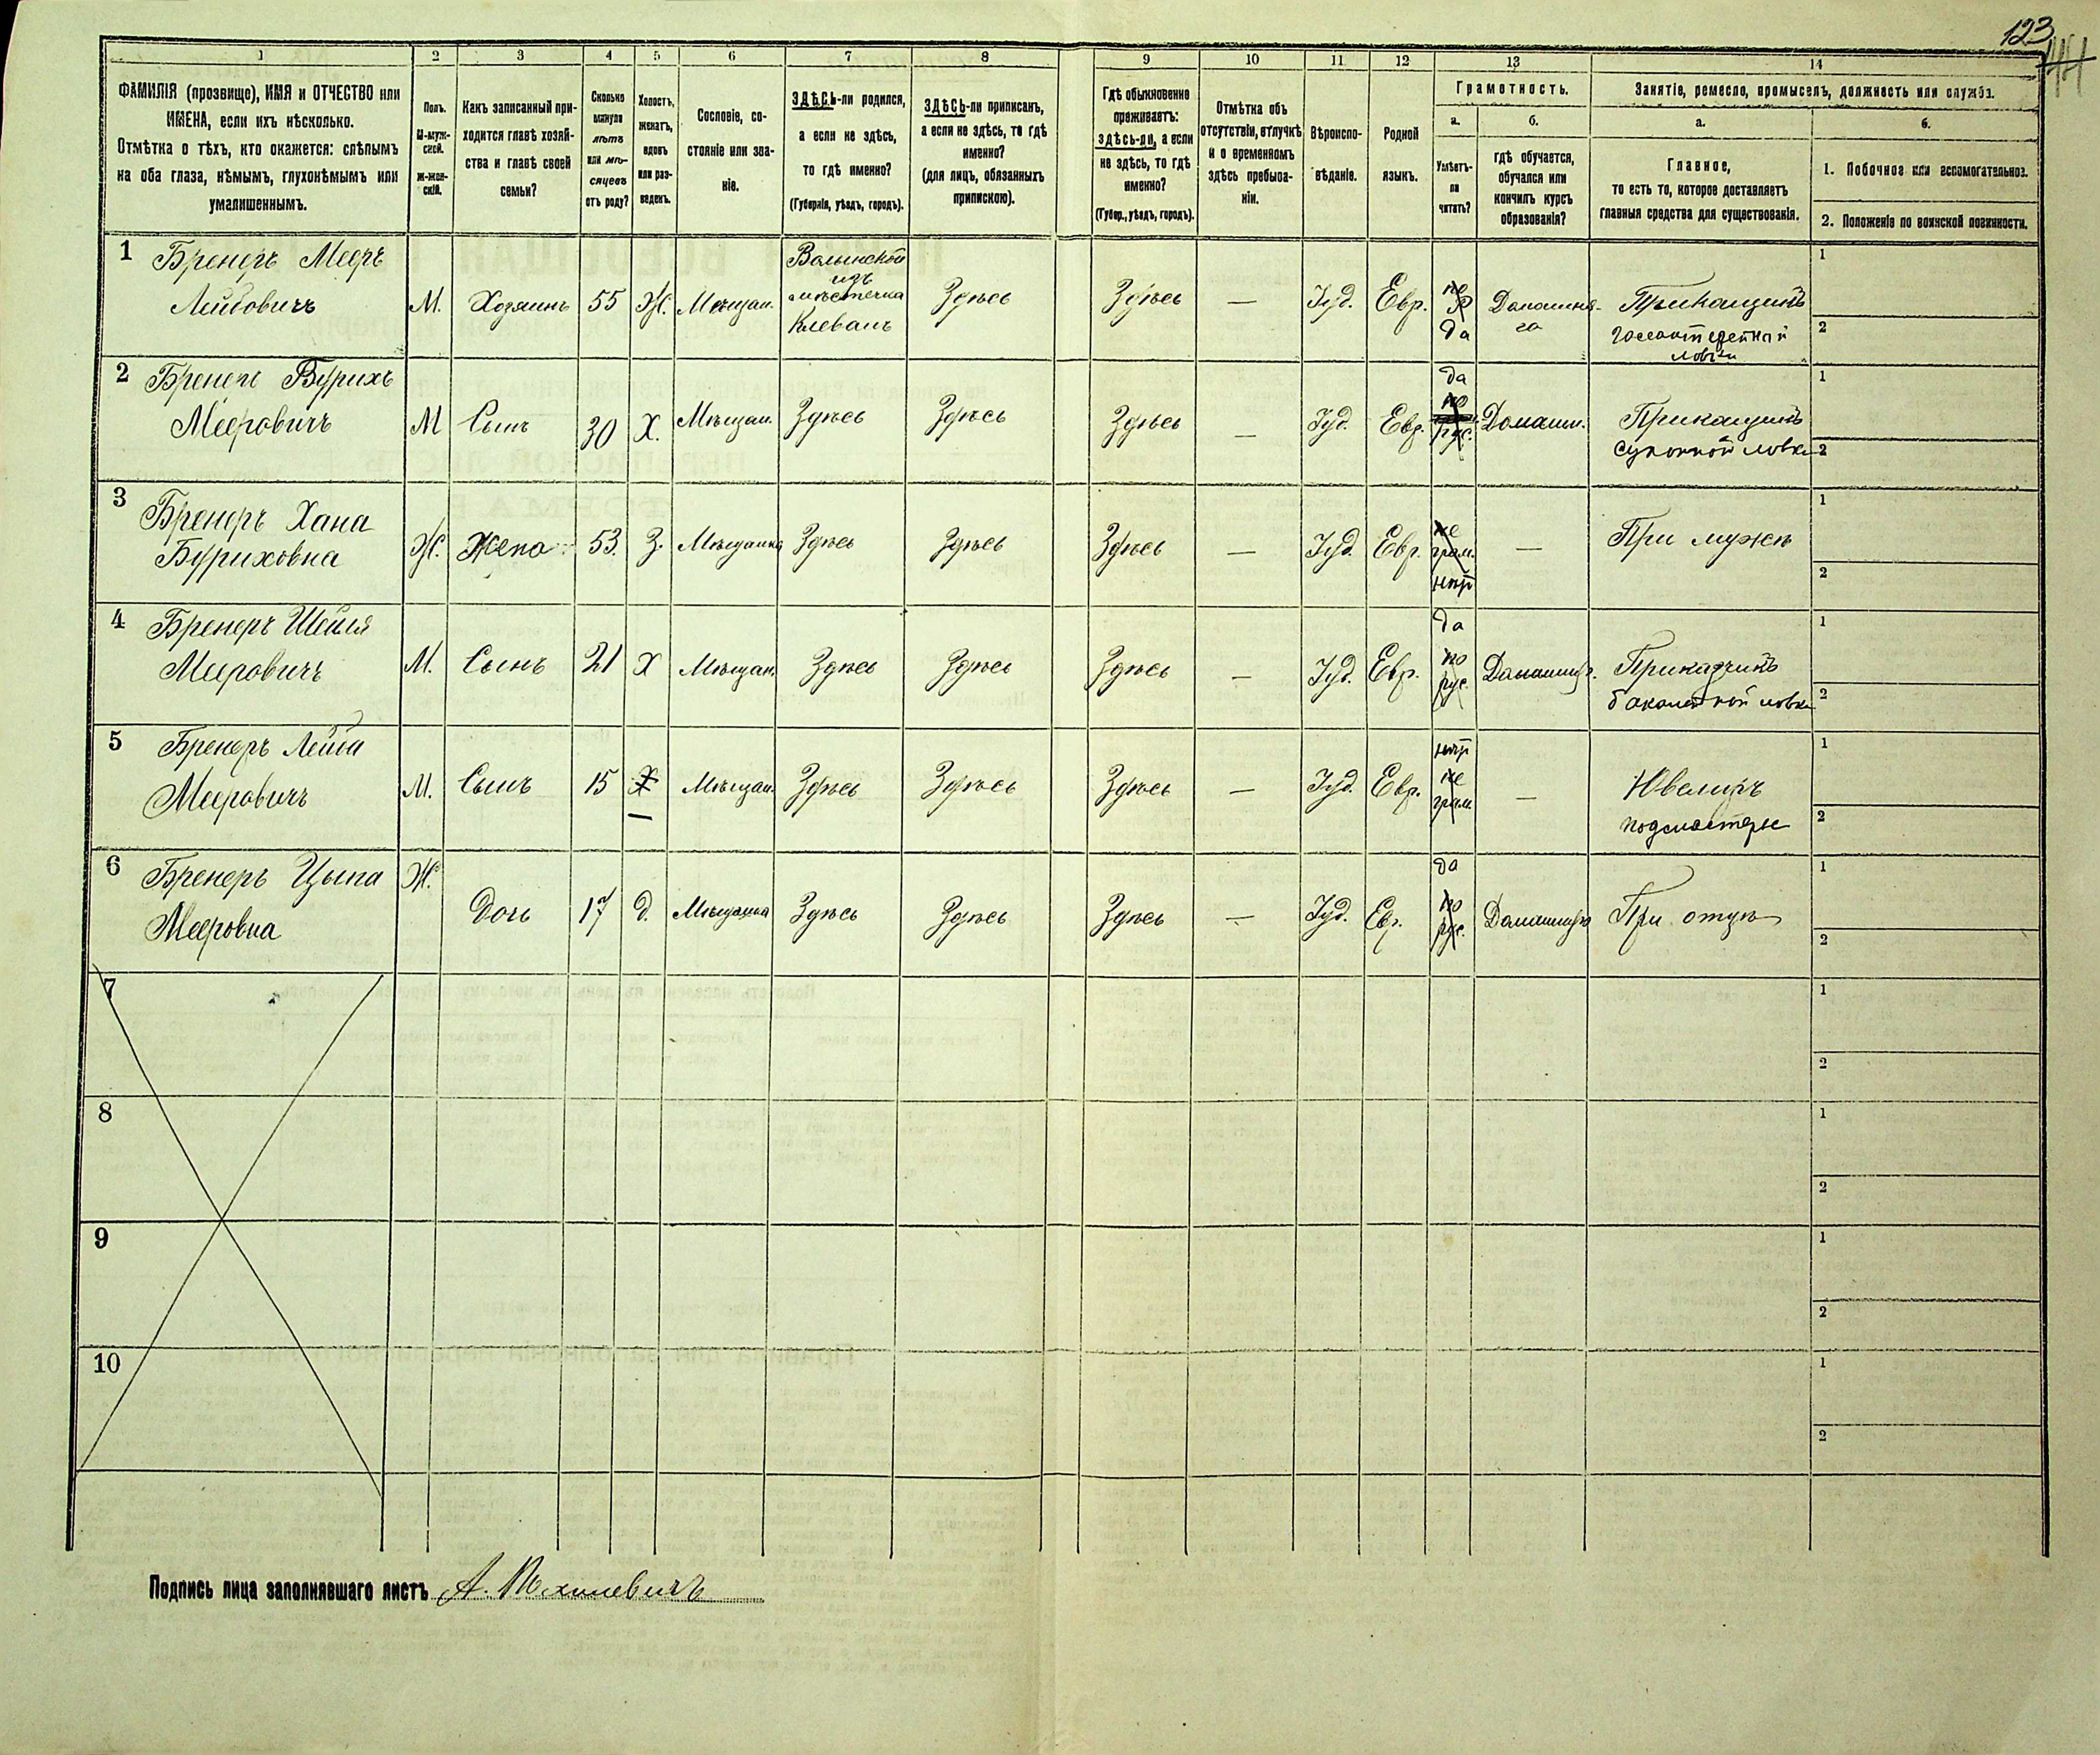 123
44
1 2 3 4 5 6 7 8 9 10 11 12 13 14
ФАМИЛІЯ (прозвище), ИМЯ и ОТЧЕСТВО или
ИМЕНА, если ихъ нѣсколько.
Отмѣтка о тѣхъ, кто окажется: слѣпымъ
на оба глаза, нѣмымъ, глухонѣмымъ или
умалишеннымъ.
Полъ.
М-муж-
ской.
ж-жен-
скій.
Какъ записанный при-
ходится главѣ хозяй-
ства и главѣ своей
семьи?
Сколько
минуло
лѣтъ
или мѣ-
сяцевъ
отъ роду?
Холостъ,
женатъ,
вдовъ
или раз-
веденъ.
Сословіе, со-
стояніе или зва-
ніе.
ЗДѢСЬ-ли родился,
а если не здѣсь,
то гдѣ именно?
(Губернія, уѣздъ, городъ).
ЗДѢСЬ-ли приписанъ,
а если не здѣсь, то гдѣ
именно?
(для лицъ, обязанныхъ
припискою).
Гдѣ обыкновенно
проживаетъ:
ЗДѢСЬ-ли, а если
не здѣсь, то гдѣ
именно?
(Губер., уѣздъ, городъ).
Отмѣтка объ
отсутствіи, отлучкѣ
и о временномъ
здѣсь пребыва-
ніи.
Вѣроиспо-
вѣданіе.
Родной
языкъ.
Грамотность.
а.
Умѣетъ-
ли
читать?
б.
гдѣ обучается,
обучался или
кончилъ курсъ
образованія?
Занятіе, ремесло, промыселъ, должность или служба.
а.
Главное,
то есть то, которое доставляетъ
главныя средства для существованія.
б.
1. Побочное или вспомогательное.
2. Положеніе по воинской повинности.
1 Бренеръ Мееръ
Лейбовичъ
М. Хозяинъ 55 Ж. Мѣщан.
Волынской
изъ
мѣстечка
Клевань
Здѣсь Здѣсь — Іуд. Евр.
да
Домашня-
го
Прикащикъ
1
2
2 Бренеръ Бурихъ
Мееровичъ
М Сынъ 30 Х. Мѣщан. Здѣсь Здѣсь Здѣсь — Іуд. Евр.
да
по
рус.
Домашн.
Прикащикъ
суконной лавки
1
2
3 Бренеръ Хана
Буриховна
Ж. Жена 53. З. Мѣщанка Здѣсь Здѣсь Здѣсь — Іуд. Евр.
не
грам.
нѣтъ
—
При мужѣ
1
2
4 Бренеръ Шейля
Мееровичъ
М. Сынъ 21 Х Мѣщан. Здѣсь Здѣсь Здѣсь — Іуд. Евр.
да
по
рус.
Приказчикъ
бакалейной лавки
1
2
5 Бренеръ Лейба
Мееровичъ
М. Сынъ 15 Х Мѣщан. Здѣсь Здѣсь Здѣсь — Іуд. Евр.
нѣтъ
не
грам
—
Ювелиръ
подмастерье
1
2
6 Бренеръ Цыпа
Мееровна
Ж. Дочь 17 д. Мѣщанка Здѣсь Здѣсь Здѣсь — Іуд. Евр.
да
по
рус.
При отцѣ
1
2
7
1
2
8
1
2
9
1
2
10
1
2
Подпись лица заполнявшаго листъ А.